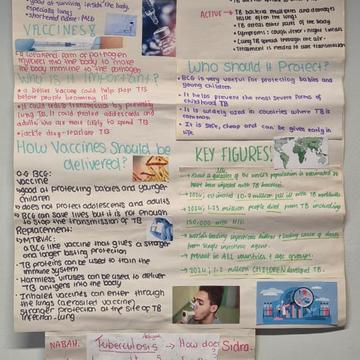 good at surviving inside the body,
especially lungs
shortened name: MCD
VACCINES
weakened form of pathogen
injected into one body to make
the body immune to the pathogen
Who is it important?
a better vaccine could help stop TB
before people becoming ill
It could reduce transmission by preventing
lung TB. It could protect adolescents and
adults who are most likely to spend TB
tackle drug-resistant TB
How Vaccines Should be
delivered?
e.g BCG:
vaccine
good at protecting babies and younger
children
does not protect adolescents and adults
BCG can save lives but it is not enough
to stop the transmission of TB
Replacement:
MTBVAC:
a BCG like vaccine that gives a stronger
and longer lasting protection
TB proteins can be used to train the
immune system
Harmless viruses can be used to deliver
TB antigens into the body
Inhaled vaccines can enter through
the lungs (aerosolised vaccine)
stronger protection at the site of TB
infection-Lung
ACTIVE
TB bacteria multiplies and damages
tissue often the lungs
TB affects other parts of the body
Symptoms: cough, fever, night sweats
Lung TB spread through the air
Treatment is needed to stop transmission
Who should it Protect?
BCG is very useful for protecting babies and
young children
It helps prevent the most severe forms of
childhood TB
It is widely used in countries where TB is
common
It is safe, cheap and can be given early in
life
KEY FIGURES:
About a quarter of the world's population is estimated to
have been infected with TB bacteria
2024, est around 10.7 million fell ill with TB worldwide
2024, 1.23 million people died from TB including
150,000 with HIV
world's leading infectious disease & leading cause of death
from single infectious agent
present in ALL countries & age groups
2024, 1.2 million CHILDREN developed TB
NABAH.
Tuberculosis → How does
Sidra.